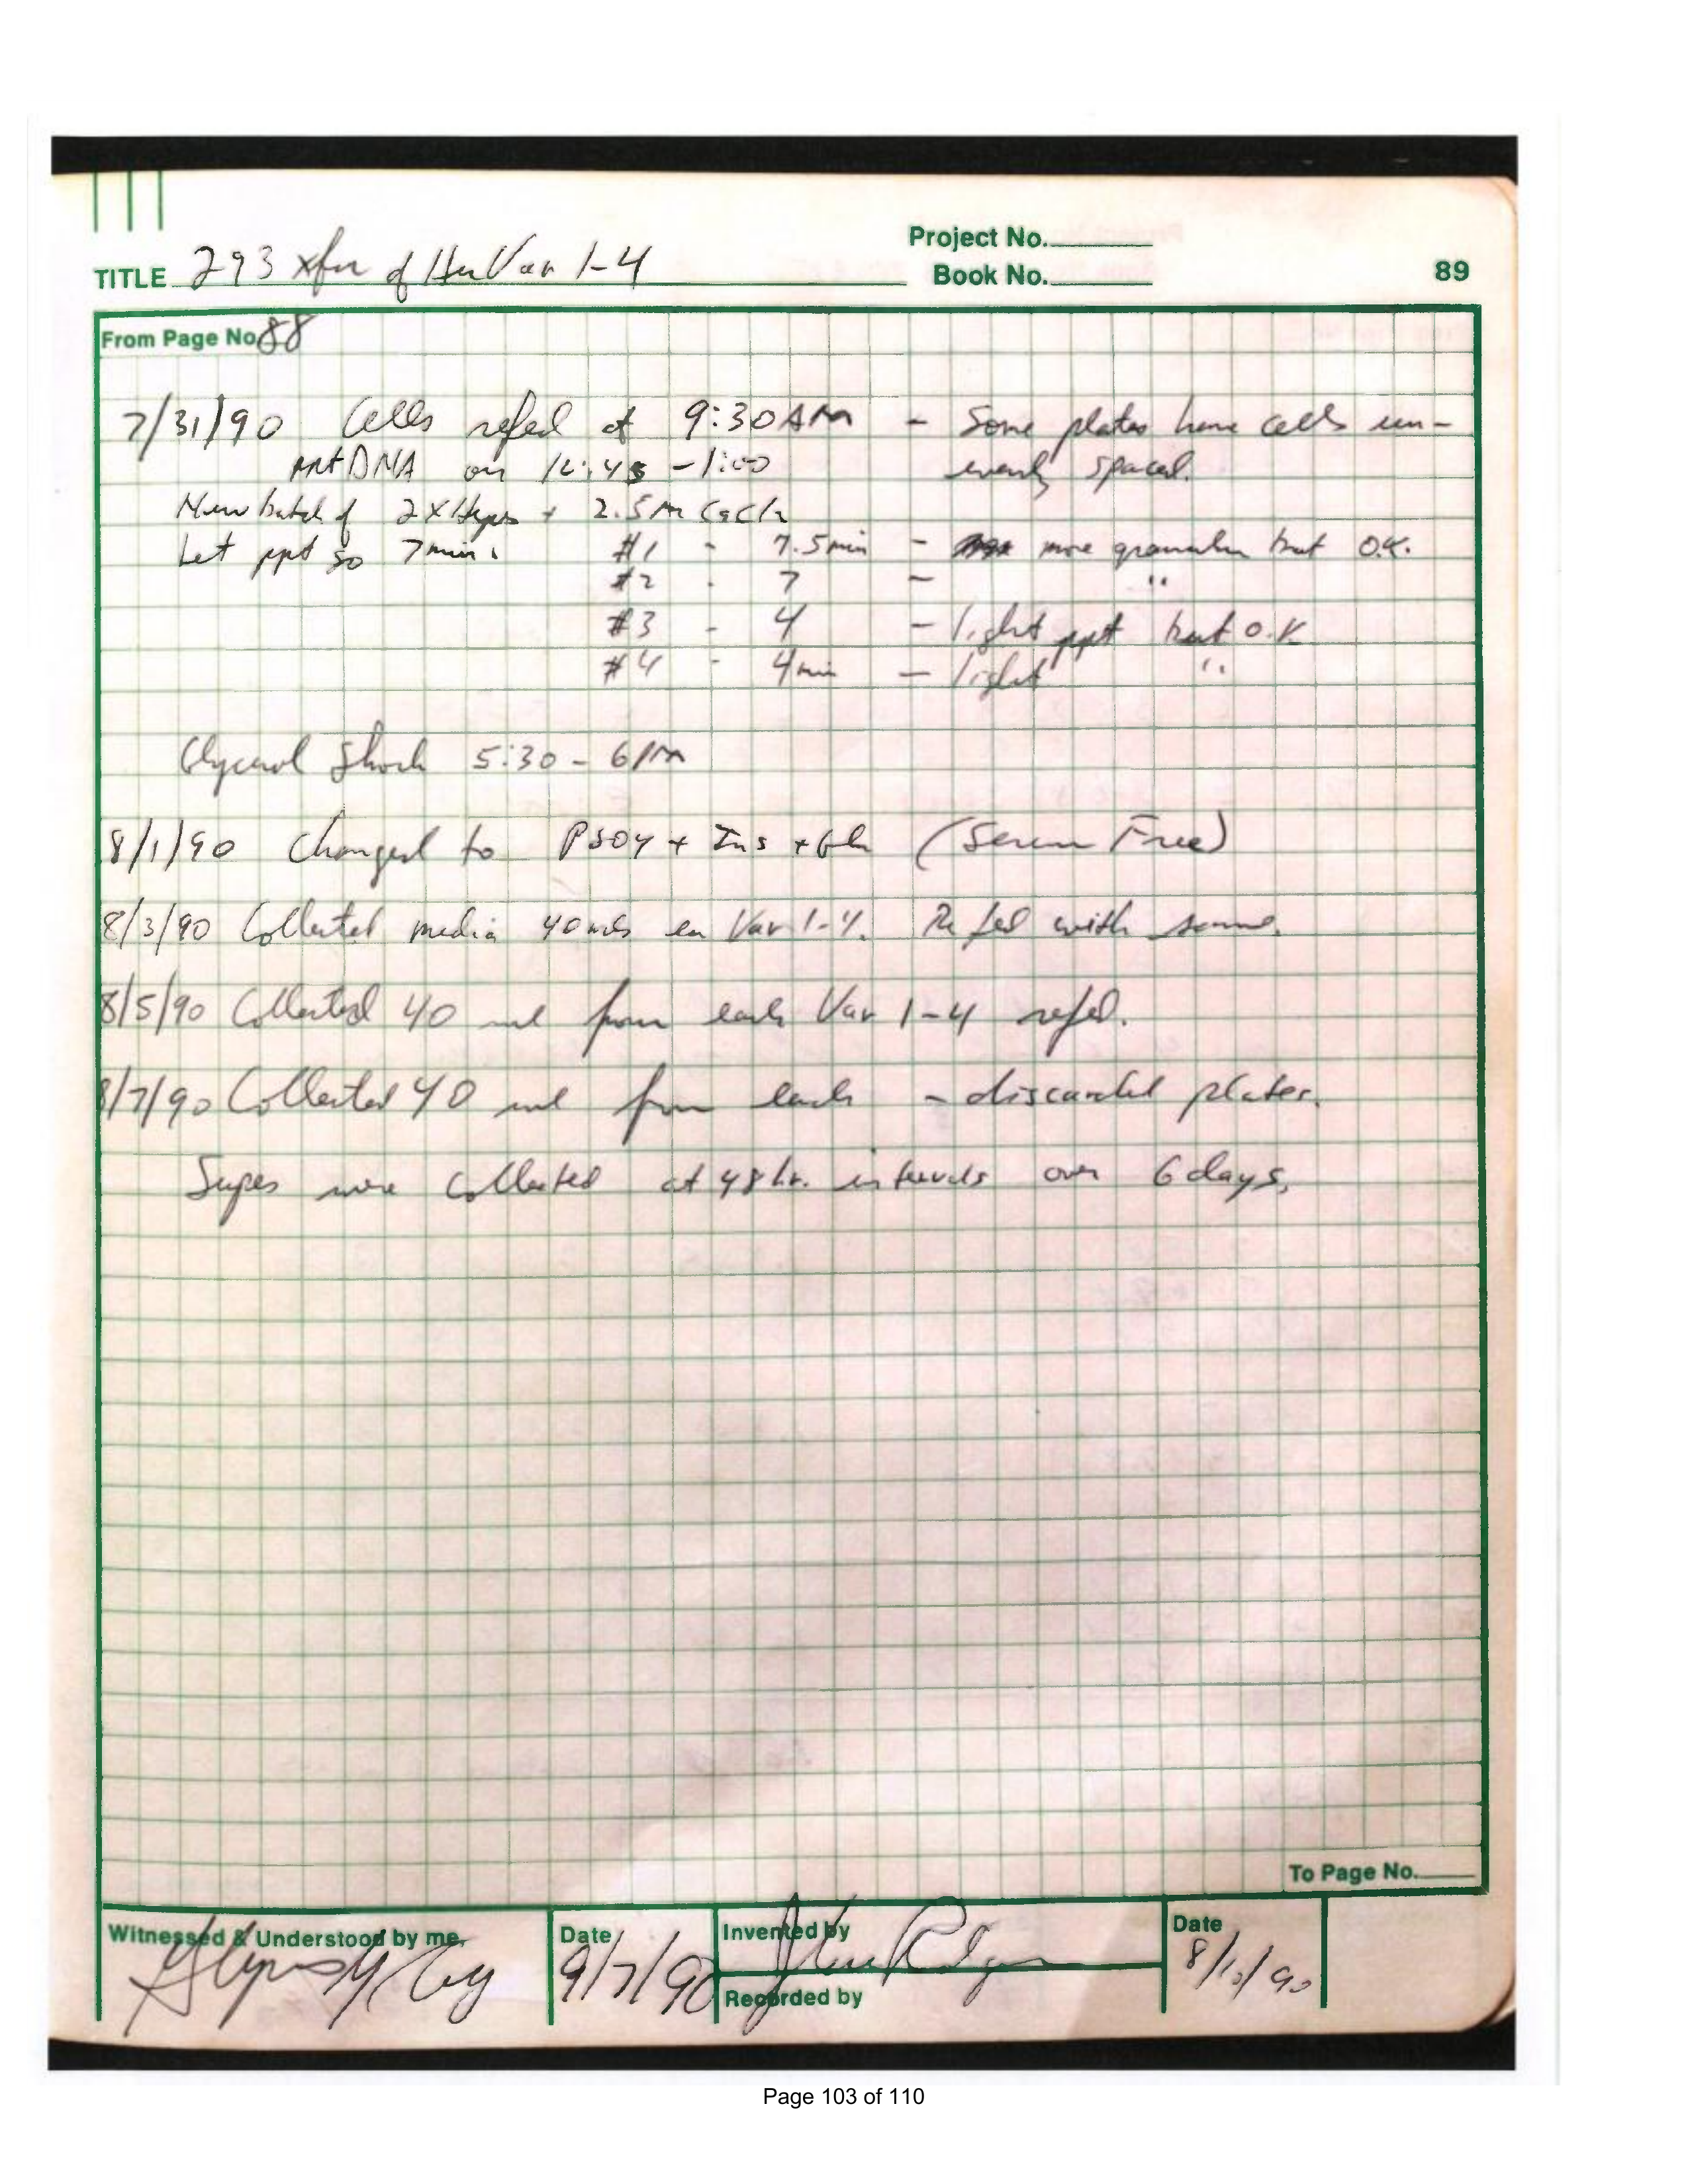 Project No.
TITLE 293 xfn of Hu Var 1-4
Book No.
89
From Page No. 88
7/31/90 Cells refed at 9:30 AM - Some plates have cells un-
evenly spaced.
DNA on 12:45 - 1:00
New batch of 2X Hepes + 2.5M CaCl2
Let ppt go 7 min. #1 - 7.5 min - more granular but O.K.
#2 - 7 - "
#3 - 4 - light ppt but O.K.
#4 - 4 min - light "
Glycerol Shock 5:30 - 6 PM
8/1/90 Changed to PS04 + Ins + (Serum Free)
8/3/90 Collected media 40 mls ea Var 1-4. Refed with same.
8/5/90 Collected 40 ml from each Var 1-4 refed.
8/7/90 Collected 40 ml from each - discarded plates.
Supes were collected at 48 hr. intervals over 6 days.
To Page No.
Witnessed & Understood by me,
Date
9/7/90
Invented by
Recorded by
Date
8/10/90
Page 103 of 110